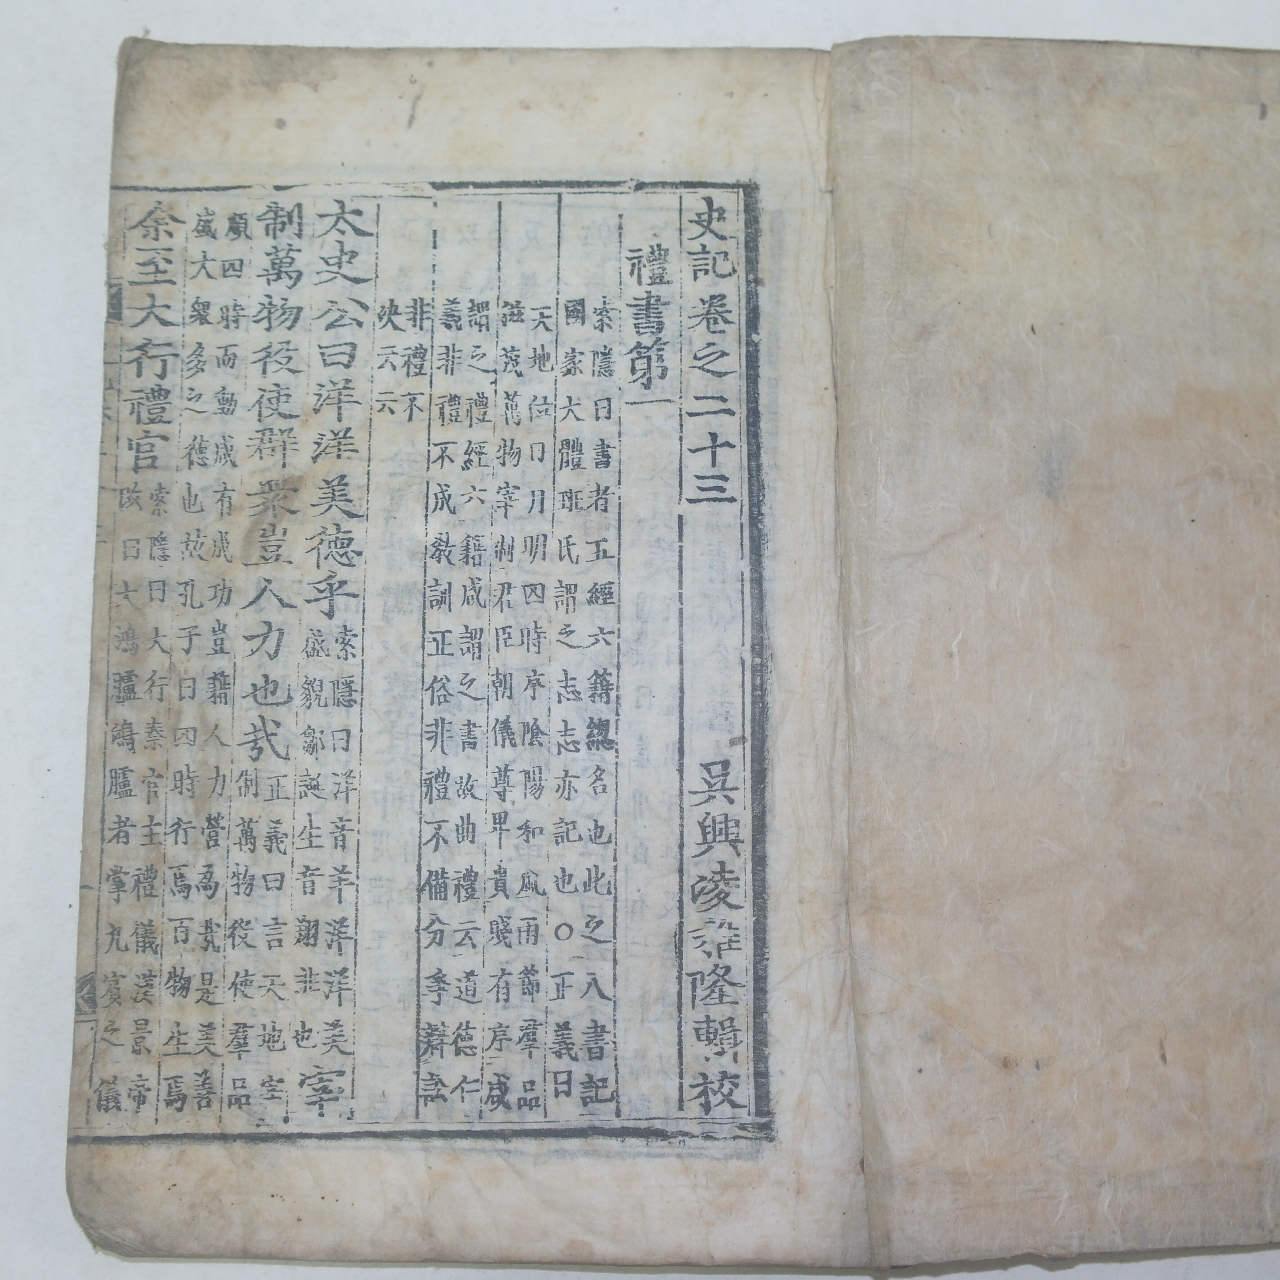 史記卷之二十三 吳興凌稚隆輯校
禮書第一
索隱曰書者五經六籍總名也此之八書記
國家大體班氏謂之志志亦記也○正義曰
天地位日月明四時序陰陽和風雨節羣品
滋茂萬物宰制君臣朝儀尊卑貴賤有序咸
謂之禮經六籍咸謂之書故曲禮云道德仁
義非禮不成敎訓正俗非禮不備分爭辨訟
非禮不
決云云
太史公曰洋洋美德乎
索隱曰洋音羊洋洋美
盛貌鄒誕生音翔非也
宰
制萬物役使群衆豈人力也哉
正義曰言天地宰
制萬物役使羣品
順四時而動咸有成功豈藉人力營爲哉是美善
盛大衆多之德也故孔子曰四時行焉百物生焉
余至大行禮官
索隱曰大行秦官主禮儀漢景帝
改曰大鴻臚鴻臚者掌九賓之儀